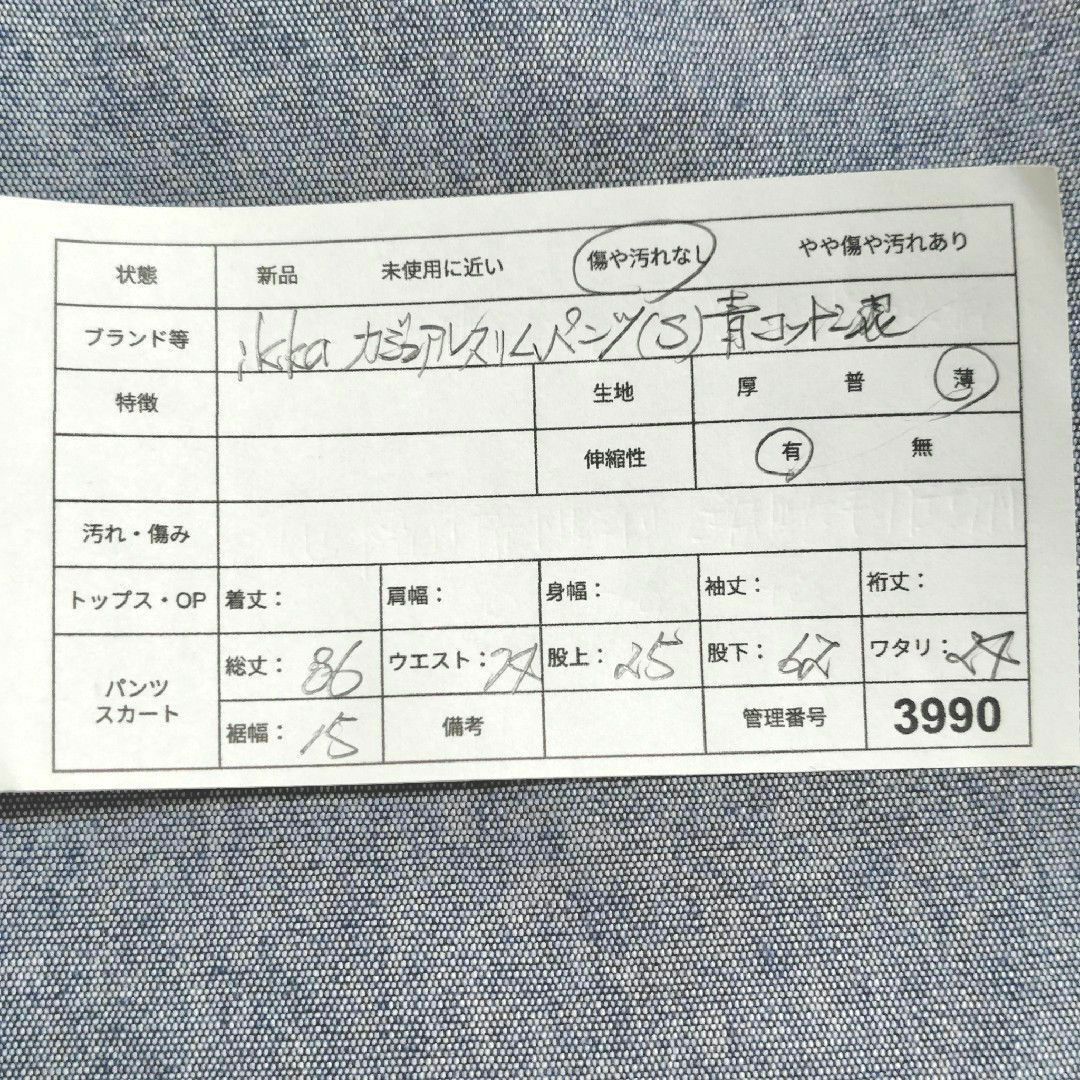 状態 新品 未使用に近い 傷や汚れなし やや傷や汚れあり
ブランド等 ikka カジュアルスリムパンツ(S)青コットン
特徴 生地 厚 普 薄
伸縮性 有 無
汚れ・傷み
トップス・OP 着丈： 肩幅： 身幅： 袖丈： 裄丈：
パンツ スカート 総丈：86 ウエスト： 股上：25 股下：62 ワタリ：
裾幅：15 備考 管理番号 3990